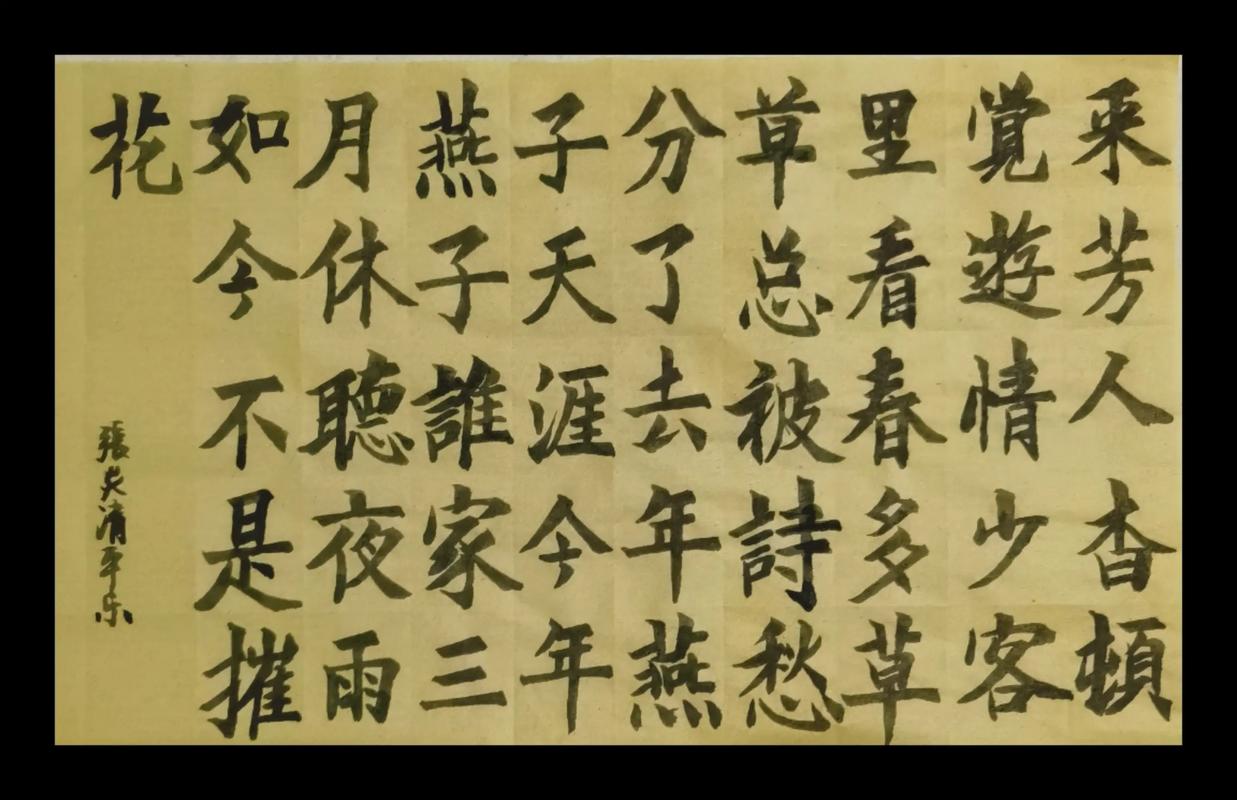 采芳人杳頓
覺遊情少客
里看春多草
草总被詩愁
分了去年燕
子天涯今年
燕子誰家三
月休聽夜雨
如今不是摧
花
張炎清平乐